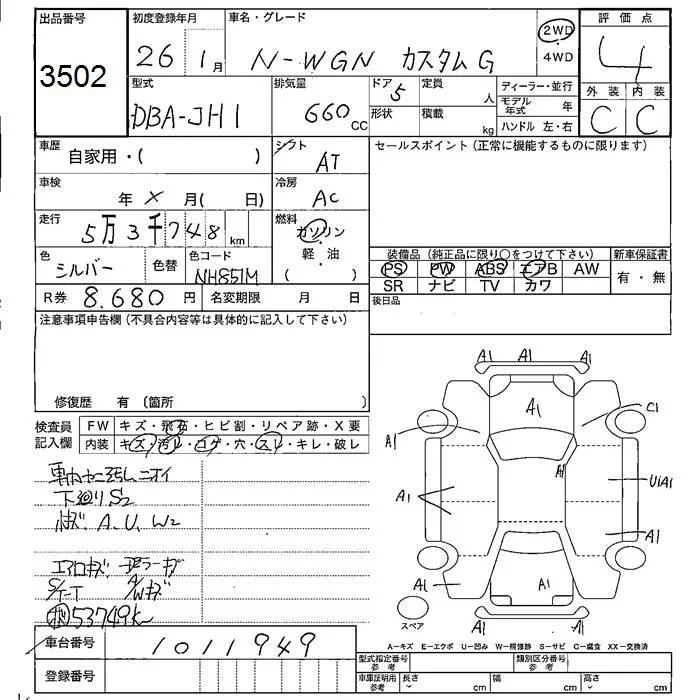 出品番号 初度登録年月 車名・グレード 評価点
3502 26 1月 N-WGN カスタム G 2WD 4
4WD
型式 排気量 ドア 定員 ディーラー・並行 外装 内装
DBA-JH1 660CC 5 人 モデル年式 年 C C
形状 積載 kg ハンドル 左・右
車歴 自家用・( ) シフト AT セールスポイント(正常に機能するものに限ります)
車検 年 X 月( 日) 冷房 AC
走行 5万3千748km 燃料 ガソリン・軽・油
( )
色 シルバー 色替 色コード NH851M
装備品(純正品に限り○をつけて下さい) 新車保証書
PS PW ABS エアB AW 有・無
SR ナビ TV カワ
R券 8.680円 名変期限 月 日 後日品
注意事項申告欄(不具合内容等は具体的に記入して下さい)
修復歴 有 〔箇所 〕
検査員記入欄 FW キズ・飛石・ヒビ割・リペア跡・X要
内装 キズ・汚レ・コゲ・穴・スレ・キレ・破レ
車内ヤニ汚レ ニオイ
下廻りS2
小キズ A. U. W2
エアロキズ ドアミラーキズ
S/T-T A/Wキズ
53749k
車台番号 1011949
登録番号
A1 A1 A1
A1 A1 C1
A1
A1 UiA1
A1
A1 A1
A1 A1
スペア
A-キズ E-エクボ U-凹み W-補修跡 S-サビ C-腐食 XX-交換済
型式指定番号参考 類別区分番号参考
車庫証明用参考 長さ cm 幅 cm 高さ cm